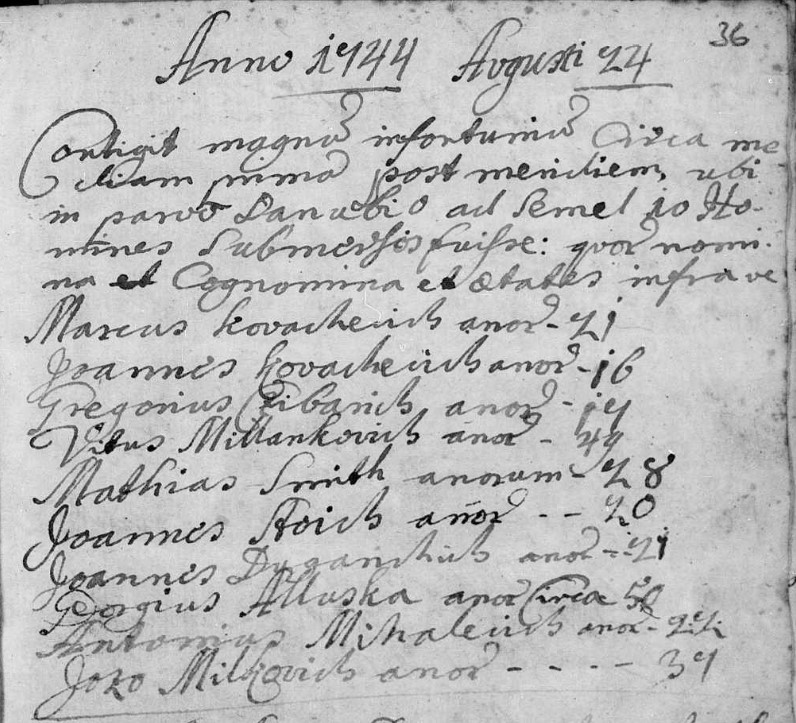 36
Anno 1744 Avgusti 24
Contigit magnū infortuniū Circa me
diam primā post meridiem, ubi
in parvo Danubio ad semel 10 Ho-
mines submersos fuisse: quor̄ nomi
na et Cognomina et ætates infra ve
Marcus Kovachevich anor̄ - 21
Joannes Kovachevich anor̄ - 16
Gregorius Cribarich anor̄ - 17
Vitus Millankovich anor̄ - 49
Mathias Smith anorum - 28
Joannes Stoich anor̄ - - 20
Joannes Duganchich anor̄ - - 21
Georgius Alluska anor̄ Circa 50
Antonius Mihalevich anor̄ - 22
Jozo Milkovich anor̄ - - - - 37